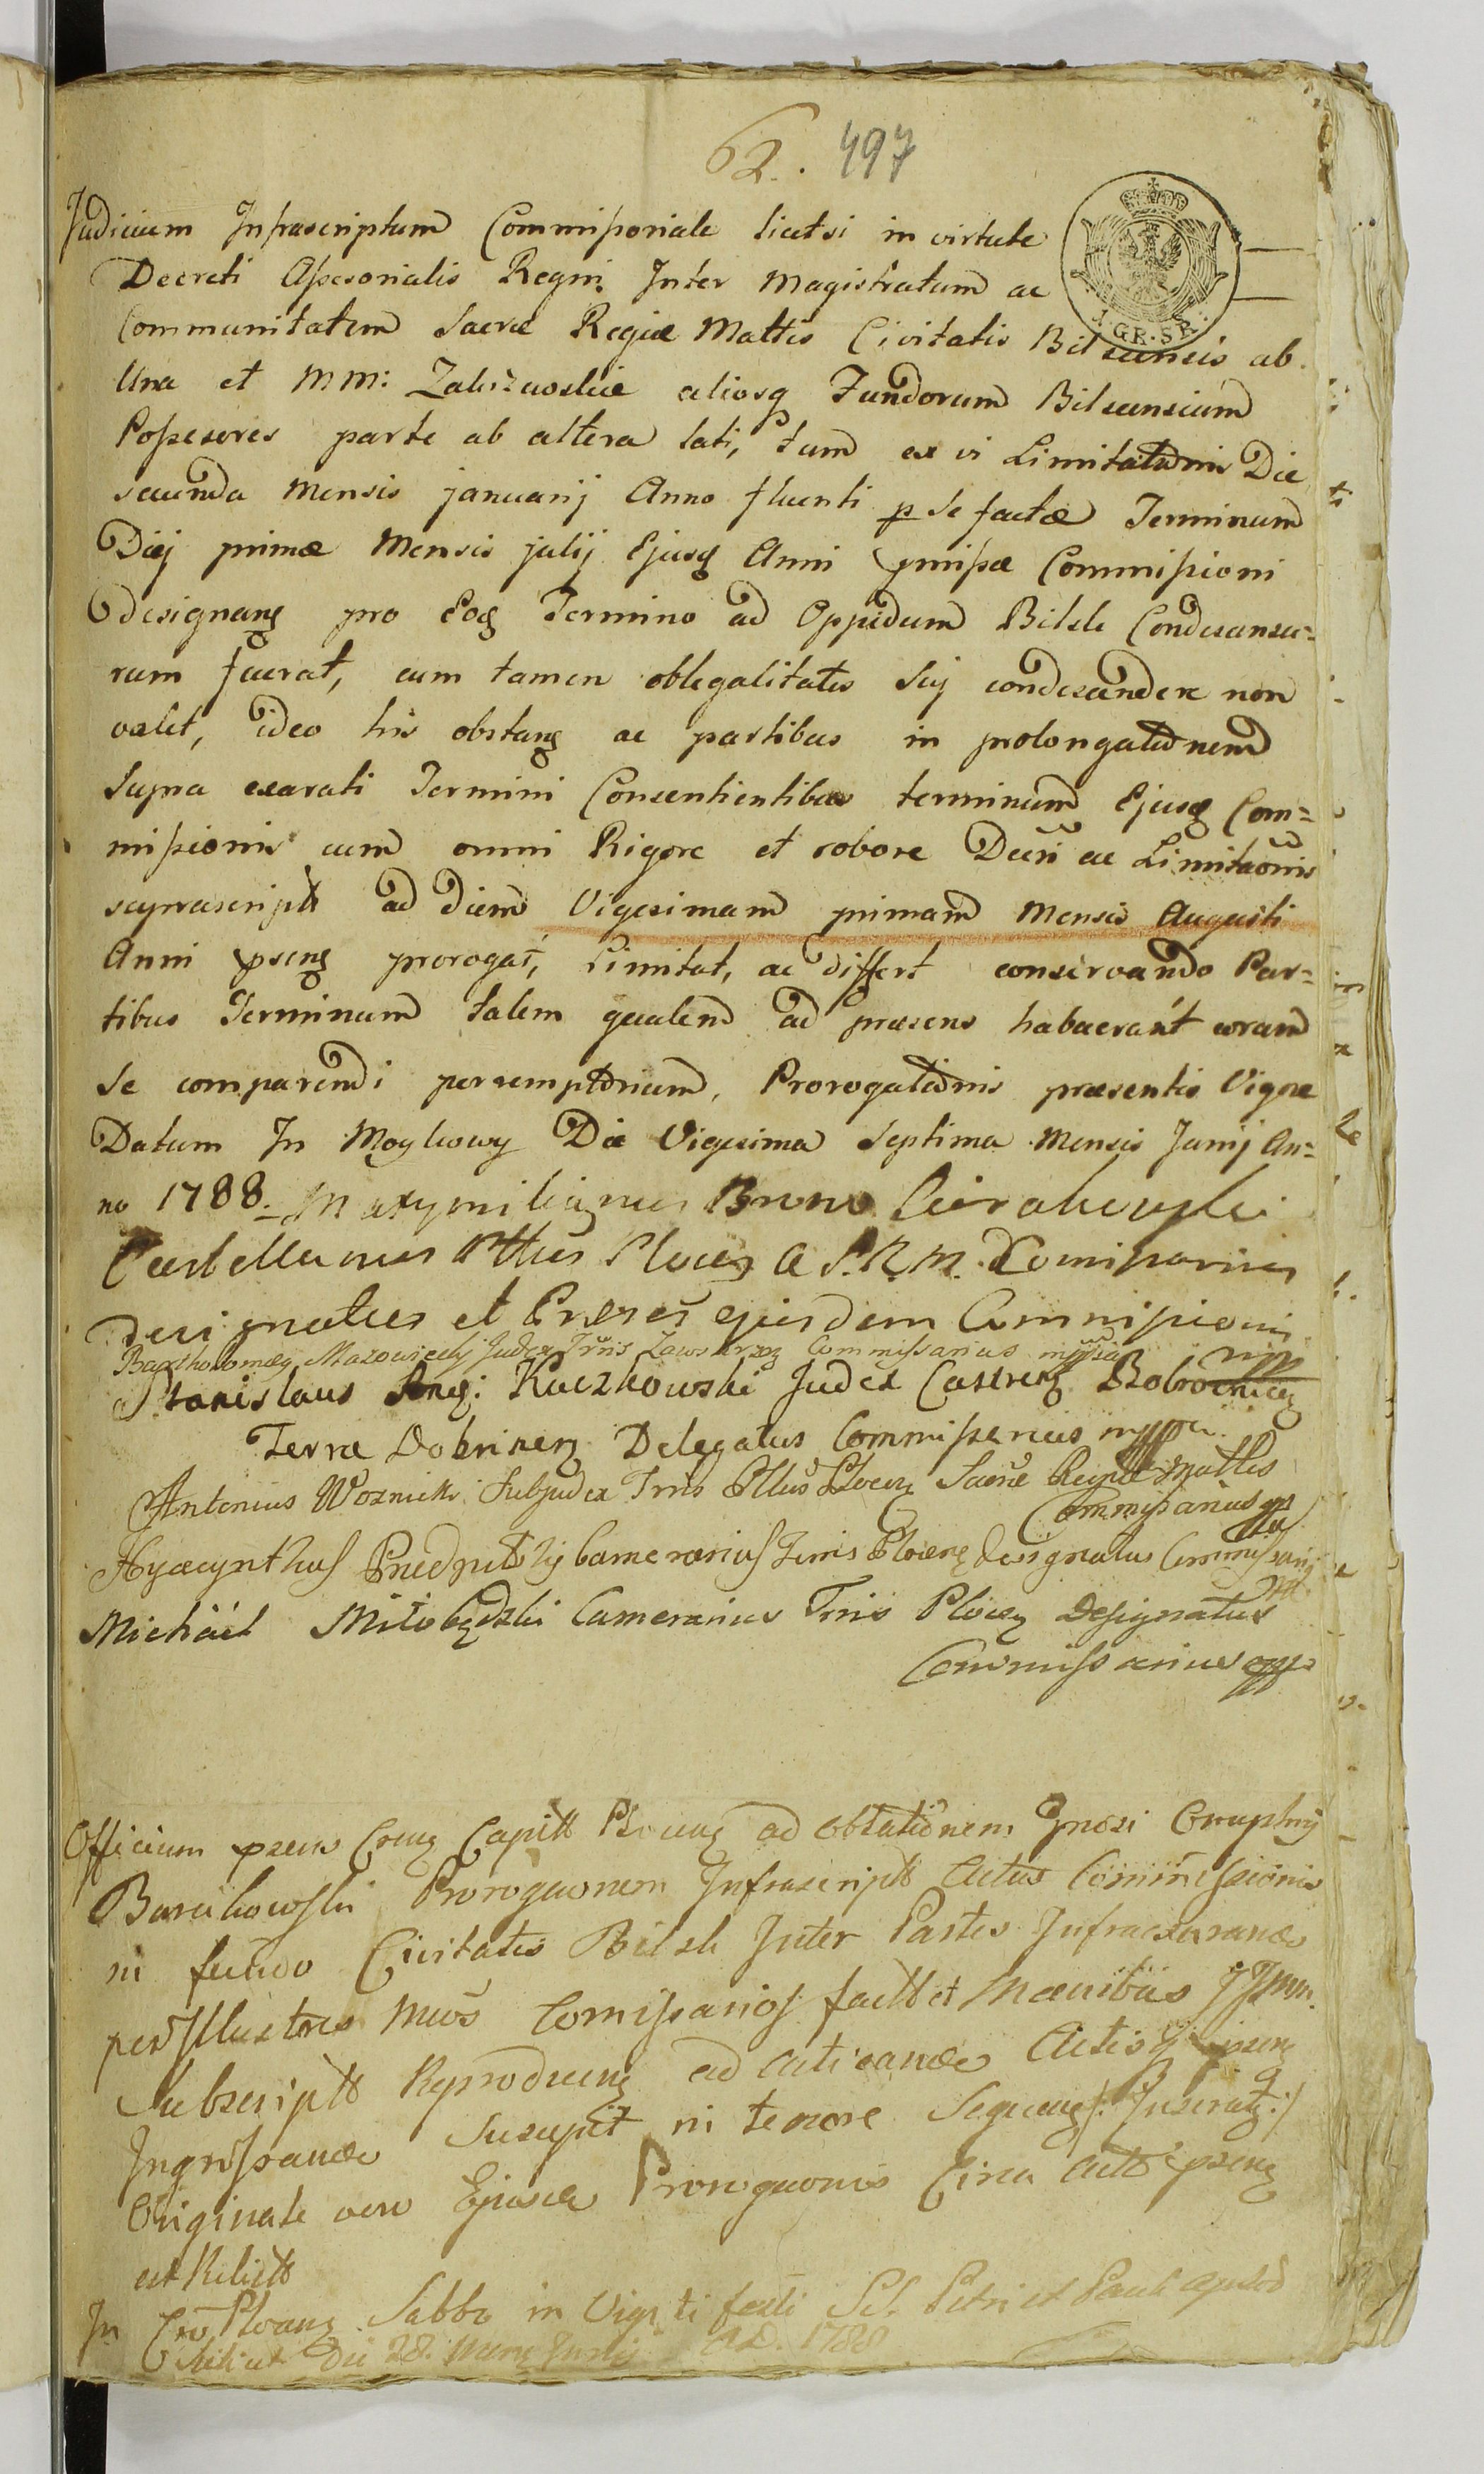 62. 497
1. GR. SR.
Judicium Infrascriptum Commissoriale licetsi in virtute
Decreti Assesorialis Regni Inter Magistratum ac
Communitatem Sacræ Regiæ Mattis Civitatis Bilscensis ab
Una et MM: aliosq Fundorum Bilscensium
Possesores parte ab altera lati, tum ex vi Limitationis Die
secunda Mensis januarij Anno fluenti p se factæ Terminum
Diej primæ Mensis julij Ejusq Anni pmissæ Commissioni
designang pro Eoq Termino ad Oppidum Bilsk Condescensu=
rum fuerat, cum tamen oblegalitates Sui condescendere non
valet, ideo his obstang ac partibus in prolongationem
Supra exarati Termini Consentientibus terminum Ejusq Com=
missionis cum omni Rigore et robore Decri ac Limitaonis
suprascript ad diem Vigesimam primam Mensis Augusti
Anni pseng prorogat, Limitat, ac differt conservando Par=
tibus Terminum talem qualem ad præsens habuerant coram
se comparendi peremptorium, Prorogationis præsentis Vigore
Datum In Moykowy Die Vigesima Septima Mensis Junij An=
no 1788. Maxymilianus Bruno
Castellanus Plocg a S.R.M. Comissarius
Designatus et Preses ejusdem Commissionis
Bartholomæg Mazowiecki Judex Trris Zawskrzg Commissarius mppria
Stanislaus Kuczkowski Judex Castreng Bobrownicg
Terræ Dobrineng Delegatus Commissarius mppr
Antonius Woznicki Subjudex Trris Plocg Sacræ Regiæ Mattis
Commissarius
Hyacynthus Camerarius Terris Ploceng Designatus Commissari
Michael Miłobędzki Camerarius Trris Plocg Designatus
Commissarius mpp
Officium psens Capitt Ploceng ad oblationem Gnosi
Prorogaonem Infrascript Actus Commissionis
in fundo Civitatis Bilsk Inter Partes Infraexarandas
per Illustres Comissarios factt et Manibus
Subscriptt Reproducng ad acticandu Actisq pseng
Ingrossandu Suscepit in tenore Sequeng /: Inseratg :/
Originale vero Ejusdem Prorogaonis Circa actt pseng
est Relictt
In Ploceng Sabbo in Vigi ti festi SS. Petri et Pauli Apstol
Scilicet Die 28. Mens Junij A.D. 1788